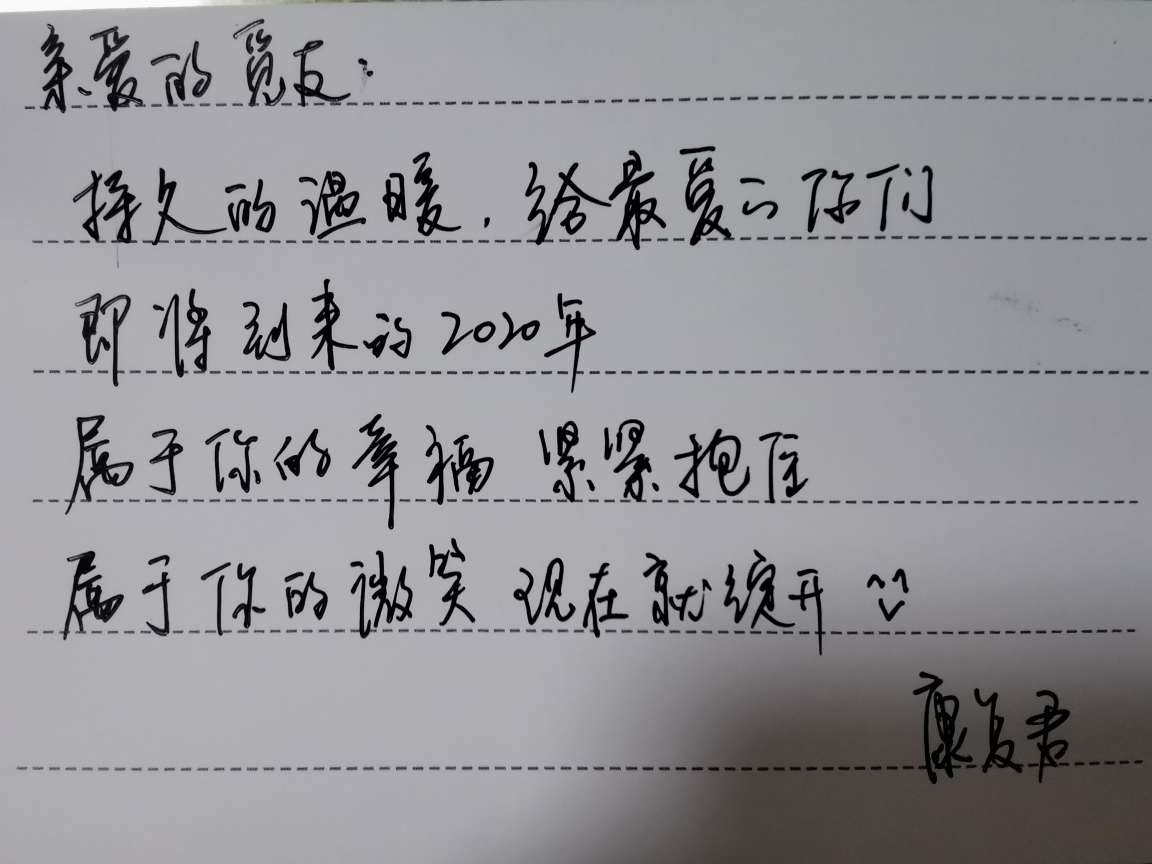 亲爱的觅友:
持久的温暖,给最爱的你们
即将到来的2020年
属于你的幸福 紧紧抱住
属于你的微笑 现在就绽开 ^^
康复君